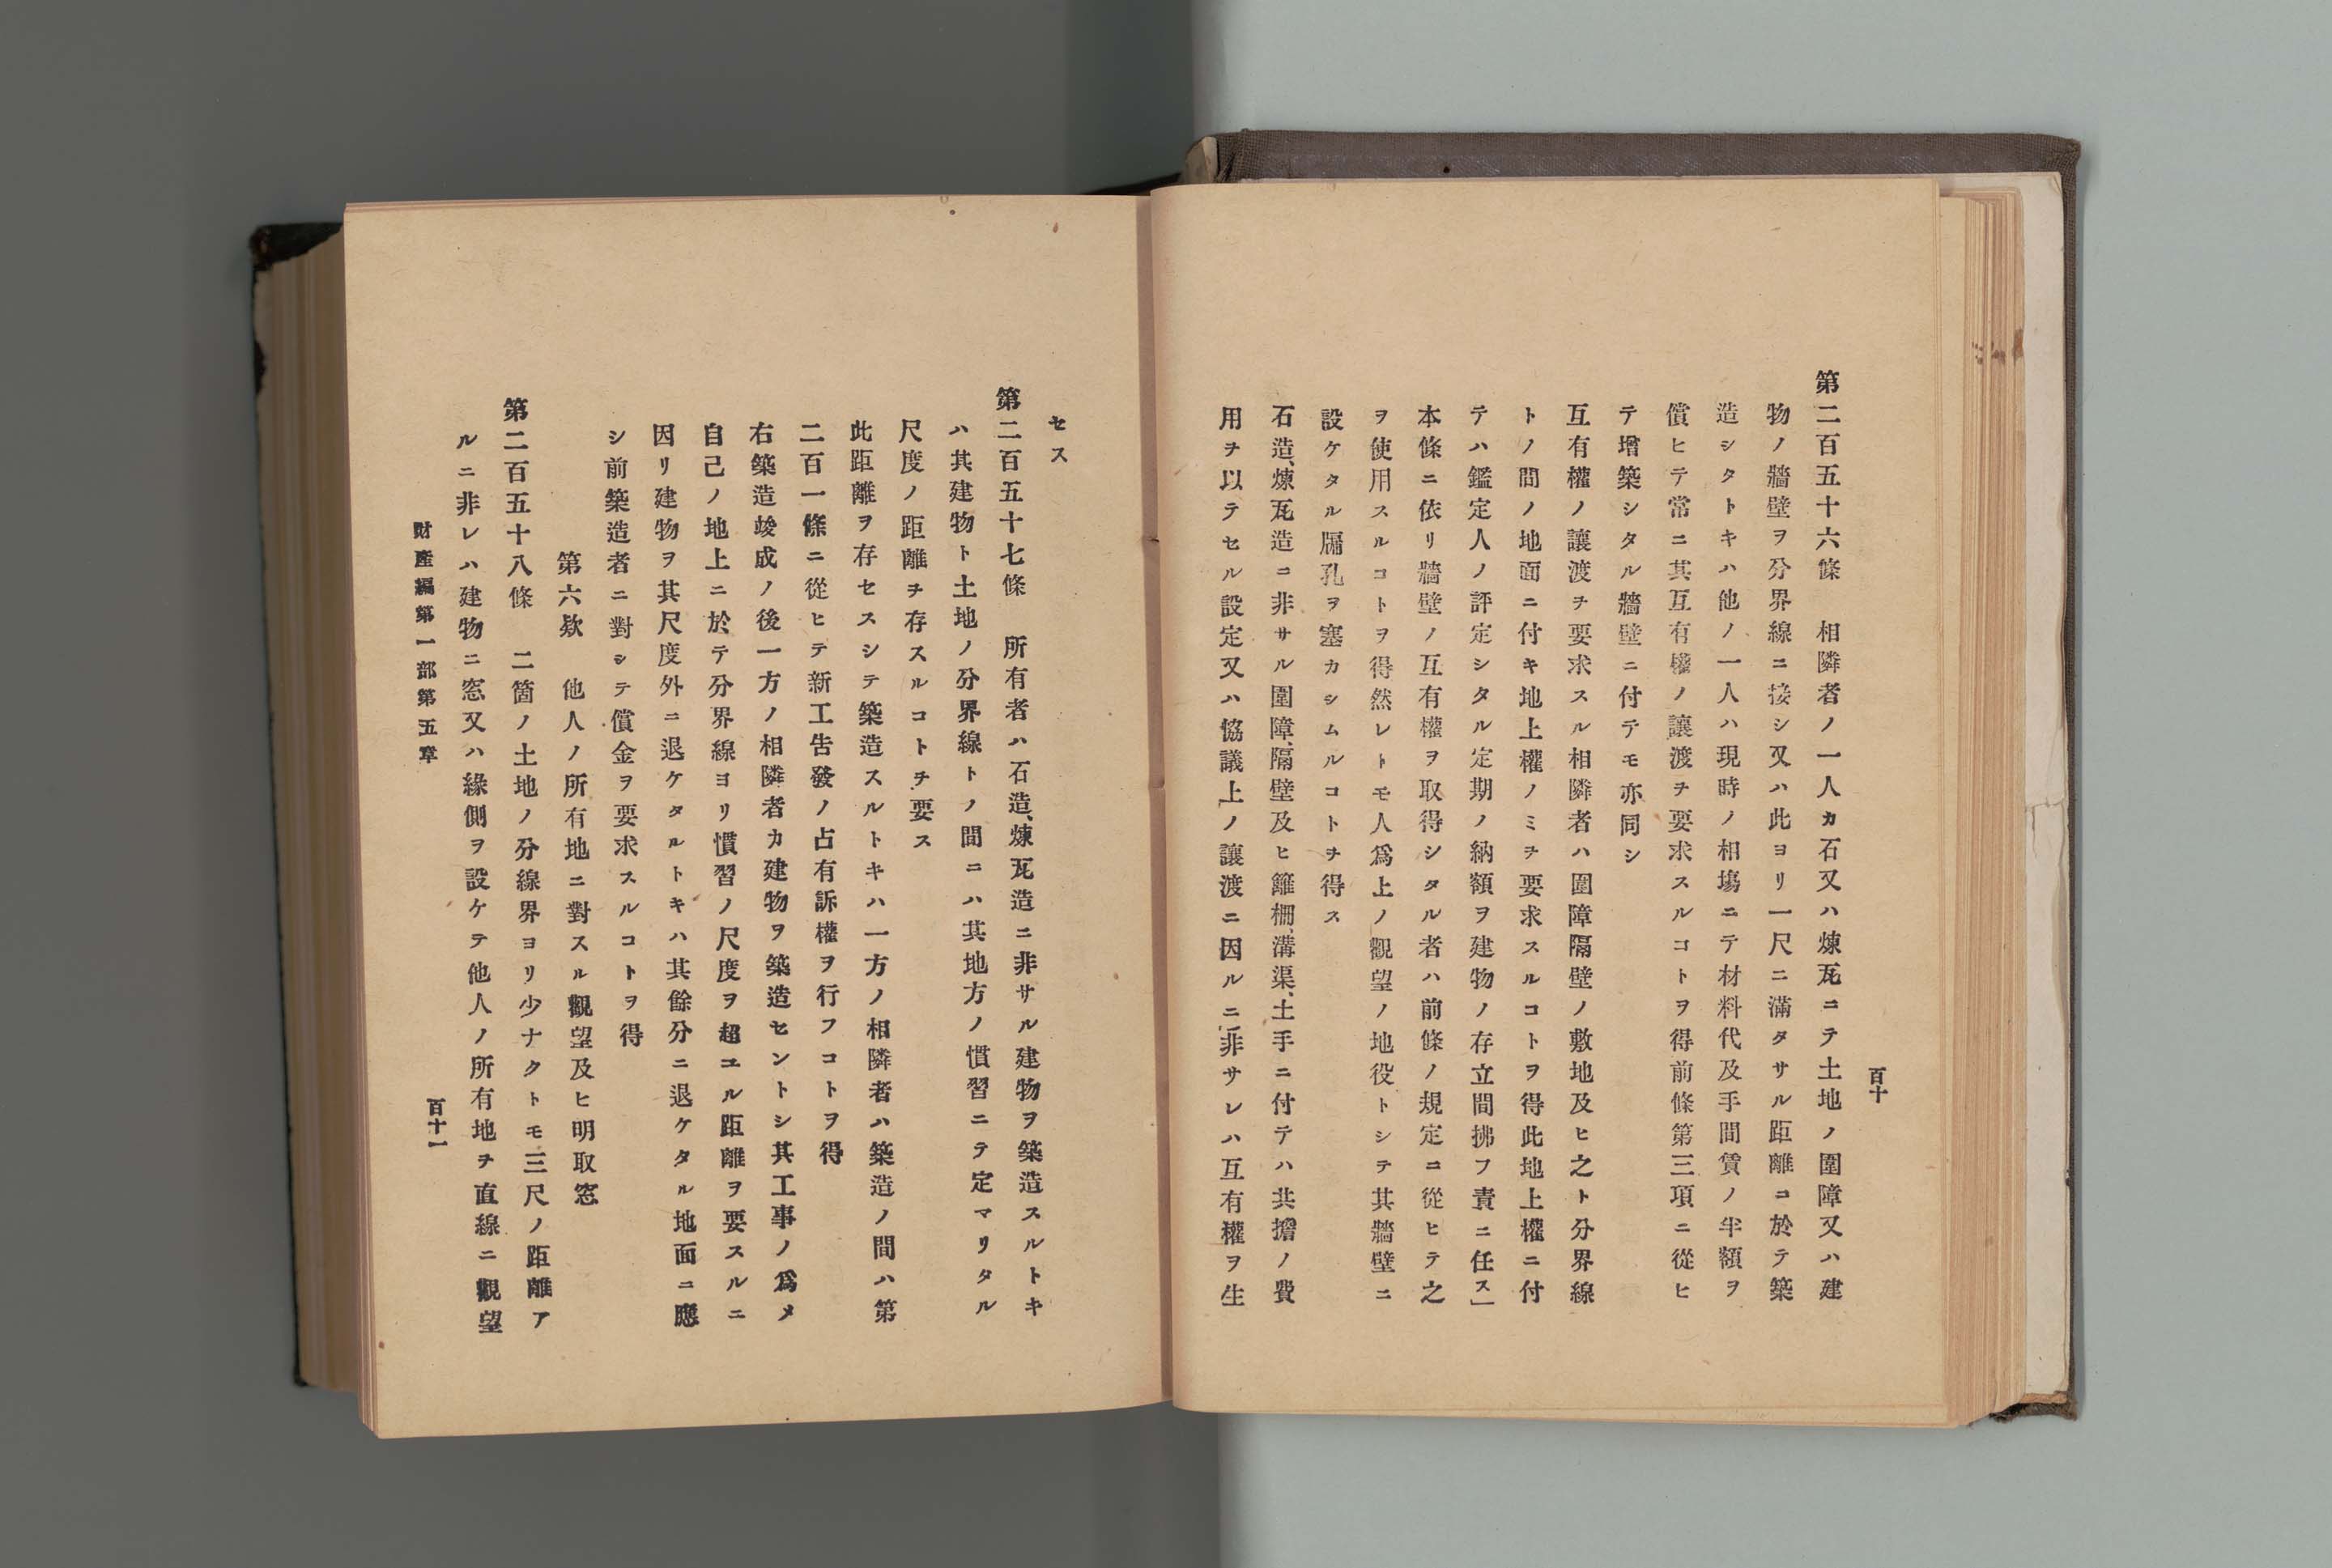 百十
第二百五十六條　相隣者ノ一人カ石又ハ煉瓦ニテ土地ノ圍障又ハ建
物ノ牆壁ヲ分界線ニ接シ又ハ此ヨリ一尺ニ滿タサル距離コ於テ築
造シタトキハ他ノ一人ハ現時ノ相塲ニテ材料代及手間賃ノ半額ヲ
償ヒテ常ニ其互有權ノ讓渡チ要求スルコトヲ得前條第三項ニ從ヒ
テ增築シタル牆壁ニ付テモ亦同シ
互有權ノ讓渡チ要求スル相隣者ハ圍障隔壁ノ敷地及ヒ之ト分界線
トノ間ノ地面ニ付キ地上權ノミチ要求スルコトヲ得此地上權ニ付
テハ鑑定人ノ評定シタル定期ノ納額ヲ建物ノ存立間拂フ責ニ任ス」
本條ニ依リ牆壁ノ互有權ヲ取得シタル者ハ前條ノ規定コ從ヒテ之
ヲ使用スルコトヲ得然レトモ人爲上ノ觀望ノ地役トシテ其牆壁ニ
設ケタル牖孔ヲ塞カシムルコトチ得ス
石造、煉瓦造コ非サル圍障、隔壁及ヒ籬柵、溝渠、土手ニ付テハ共擔ノ費
用チ以テセル設定又ハ協議上ノ讓渡ニ因ルニ非サレハ互有權ヲ生
セス
第二百五十七條　所有者ハ石造、煉瓦造ニ非サル建物ヲ築造スルトキ
ハ其建物ト土地ノ分界線トノ間ニハ其地方ノ慣習ニテ定マリタル
尺度ノ距離チ存スルコトチ要ス
此距離ヲ存セスシテ築造スルトキハ一方ノ相隣者ハ築造ノ間ハ第
二百一條ニ從ヒテ新工告發ノ占有訴權ヲ行フコトヲ得
右築造竣成ノ後一方ノ相隣者カ建物ヲ築造セントシ其工事ノ爲メ
自己ノ地上ニ於テ分界線ヨリ慣習ノ尺度ヲ超ユル距離ヲ要スルニ
因リ建物ヲ其尺度外ニ退ケタルトキハ其餘分ニ退ケタル地面ニ應
シ前築造者ニ對シテ償金ヲ要求スルコトヲ得
第六欵　他人ノ所有地ニ對スル觀望及ヒ明取窓
第二百五十八條　二箇ノ土地ノ分線界ヨリ少ナクトモ三尺ノ距離ア
ルニ非レハ建物ニ窓又ハ緣側ヲ設ケテ他人ノ所有地チ直線ニ觀望
財産編第一部第五章
百十一